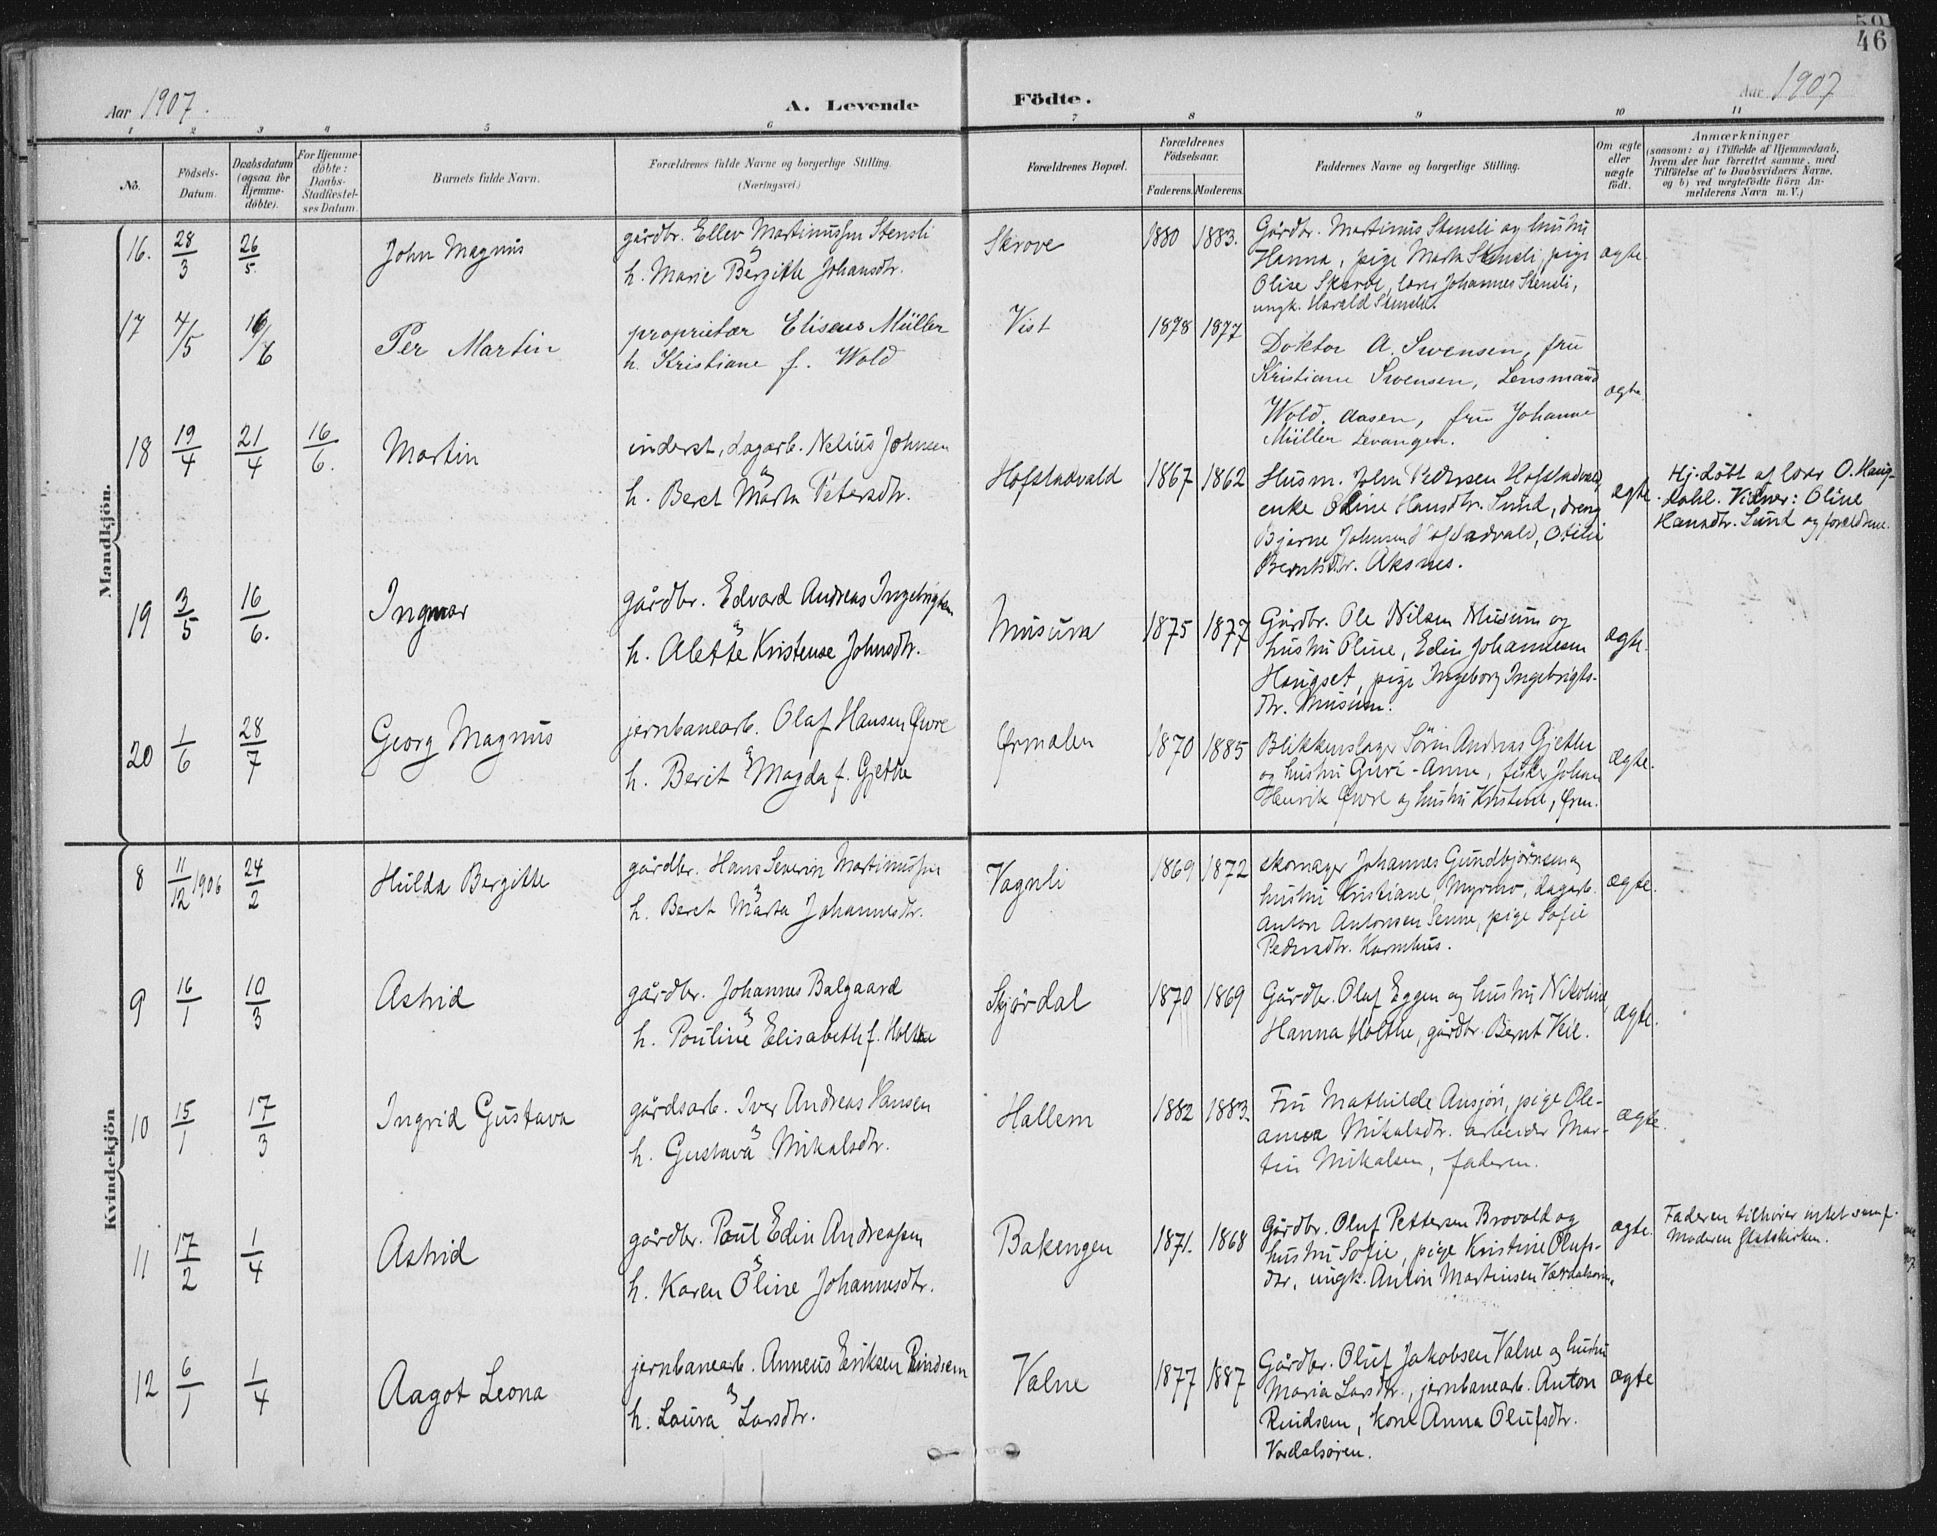 50
46
Aar 1907.
A. Levende
Födte.
Aar 1907
1 2 3 4 5 6 7 8 9 10 11
No.
Födsels-
Datum.
Daabsdatum
(ogsaa for
Hjemme-
döbte).
For Hjemme-
döbte:
Daabs-
Stadfæstel-
ses Datum.
Barnets fulde Navn.
Forældrenes fulde Navne og borgerlige Stilling.
(Næringsvei.)
Forældrenes Bopæl.
Forældrenes
Födselsaar.
Faderens. Moderens.
Faddernes Navne og borgerlige Stilling.
Om ægte
eller
uægte
födt.
Anmærkninger
(saasom: a) i Tilfælde af Hjemmedaab,
hvem der har forrettet samme, med
Tilföielse af to Daabsvidners Navne,
og b) ved uægtefödte Börn An-
melderens Navn m. V.)
Mandkjön.
16. 28/3 26/5 John Magnus
gårdbr. Ellev Martinussen Stensli
h. Marie Bergitte Johansdtr.
Skrove 1880 1883.
Gårdbr. Martinus Stensli og hustru
Hanna, pige Marta Stensli, pige
Olise Skrove, lærer Johannes Stensli,
ungk. Harald Stensli.
ægte
17 4/5 16/6 Per Martin
proprietær Eliseus Müller
h. Kristiane f. Wold
Vist 1878 1877
Doktor A. Svensen, fru
Kristiane Svensen, Lensmand
Wold. Aasen, fru Johanne
Müller Levangen.
ægte
18 19/4 21/4 16/6. Martin
inderst, dagarb. Nelius Johnsen
h. Beret Marta Petersdtr.
Hofstadvald 1867 1862
Husm. John Pedersen Hofstadvald,
enke Oline Hansdtr. Sund, dreng
Bjarne Johnsen Hofstadvald, Otilie
Berntsdtr. Aksnes.
ægte.
Hj.døbt af lærer O. Haug-
dahl. Vidner: Oline
Hansdtr. Sund og forældrene.
19 3/5 16/6. Ingmar
gårdbr. Edvard Andreas Ingebrigtsen
h. Alette Kristense Johnsdtr.
Musum 1875 1877
Gårdbr. Ole Nilsen Musum og
hustru Oline, Edin Johannesen
Haugset, pige Ingeborg Ingebrigts-
dtr. Musum.
ægte.
20 1/6 28/7 Georg Magnus
jernbanearb. Olaf Hansen Øvre
h. Berit Magda f. Gjethe
Ørmelen 1870 1885
Blikkenslager Sørin Andreas Gjethe
og hustru Guri-Anna, fisker Johan
Henrik Øvre og hustru Kristine, Ørm.
ægte.
Kvindekjön
8 11/12 1906 24/2 Hulda Bergitte
gårdbr. Hans Severin Martinussen
h. Beret Marta Johannesdtr.
Vagnli 1869 1872
skomager Johannes Gundbjørnsen og
hustru Kristiane Myrmo, dagarb.
Anton Antonsen Senne, pige Sofie
Pedersdtr. Karmhus.
ægte.
9 16/1 10/3 Astrid
gårdbr. Johannes Balgaard
h. Pauline Elisabeth f. Holthe
Skjørdal 1870 1869
Gårdbr. Olaf Eggen og hustru Nikoline,
Hanna Holthe, gårdbr. Bernt Veie.
ægte.
10 15/1 17/3 Ingrid Gustava
gårdsarb. Iver Andreas Hansen
h. Gustava Mikalsdtr.
Hallem 1882 1883.
Fru Mathilde Ausjön, pige Ole-
anna Mikalsdtr. arbeider Mar-
tin Mikalsen, faderen.
ægte.
11 17/2 1/4 Astrid
gårdbr. Paul Edin Andreassen
h. Karen Oline Johannesdtr.
Bakengen 1871. 1868
Gårdbr. Oluf Pettersen Brovold og
hustru Sofie, pige Kristine Olufs-
dtr, ungk. Anton Martinsen Værdalsøren.
ægte.
Faderen tilhører
Moderen Statskirken.
12 6/1 1/4 Aagot Leona
jernbanearb. Anneus Eriksen Rindsem
h. Laura Larsdtr.
Valne 1877 1887
Gårdbr. Oluf Jakobsen Valne og hustru
Maria Larsdtr., jernbanearb. Anton
Rindsem, kone Anna Olufsdtr.
Værdalsøren.
ægte